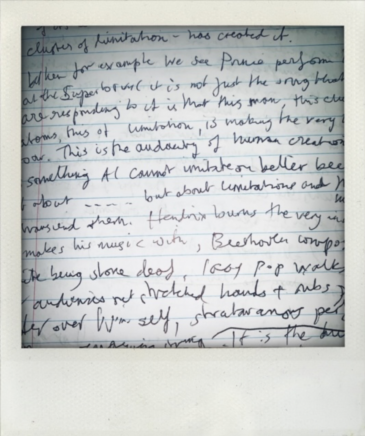 cluster of limitation - has created it.
When for example we see Prince perform
at the Superbowl it is not just the song that
are responding to it is that this man, this clu
atoms, this of limitation, is making the very
This is the audacity of human creation
something AI cannot imitate or better bec
about ---- but about limitations and
transcend them. Hendrix burns the very in
makes his music with, Beethoven compo
being stone deaf, Iggy Pop walks
audiences outstretched hands + rubs
over him self, stravaranous per
It is the